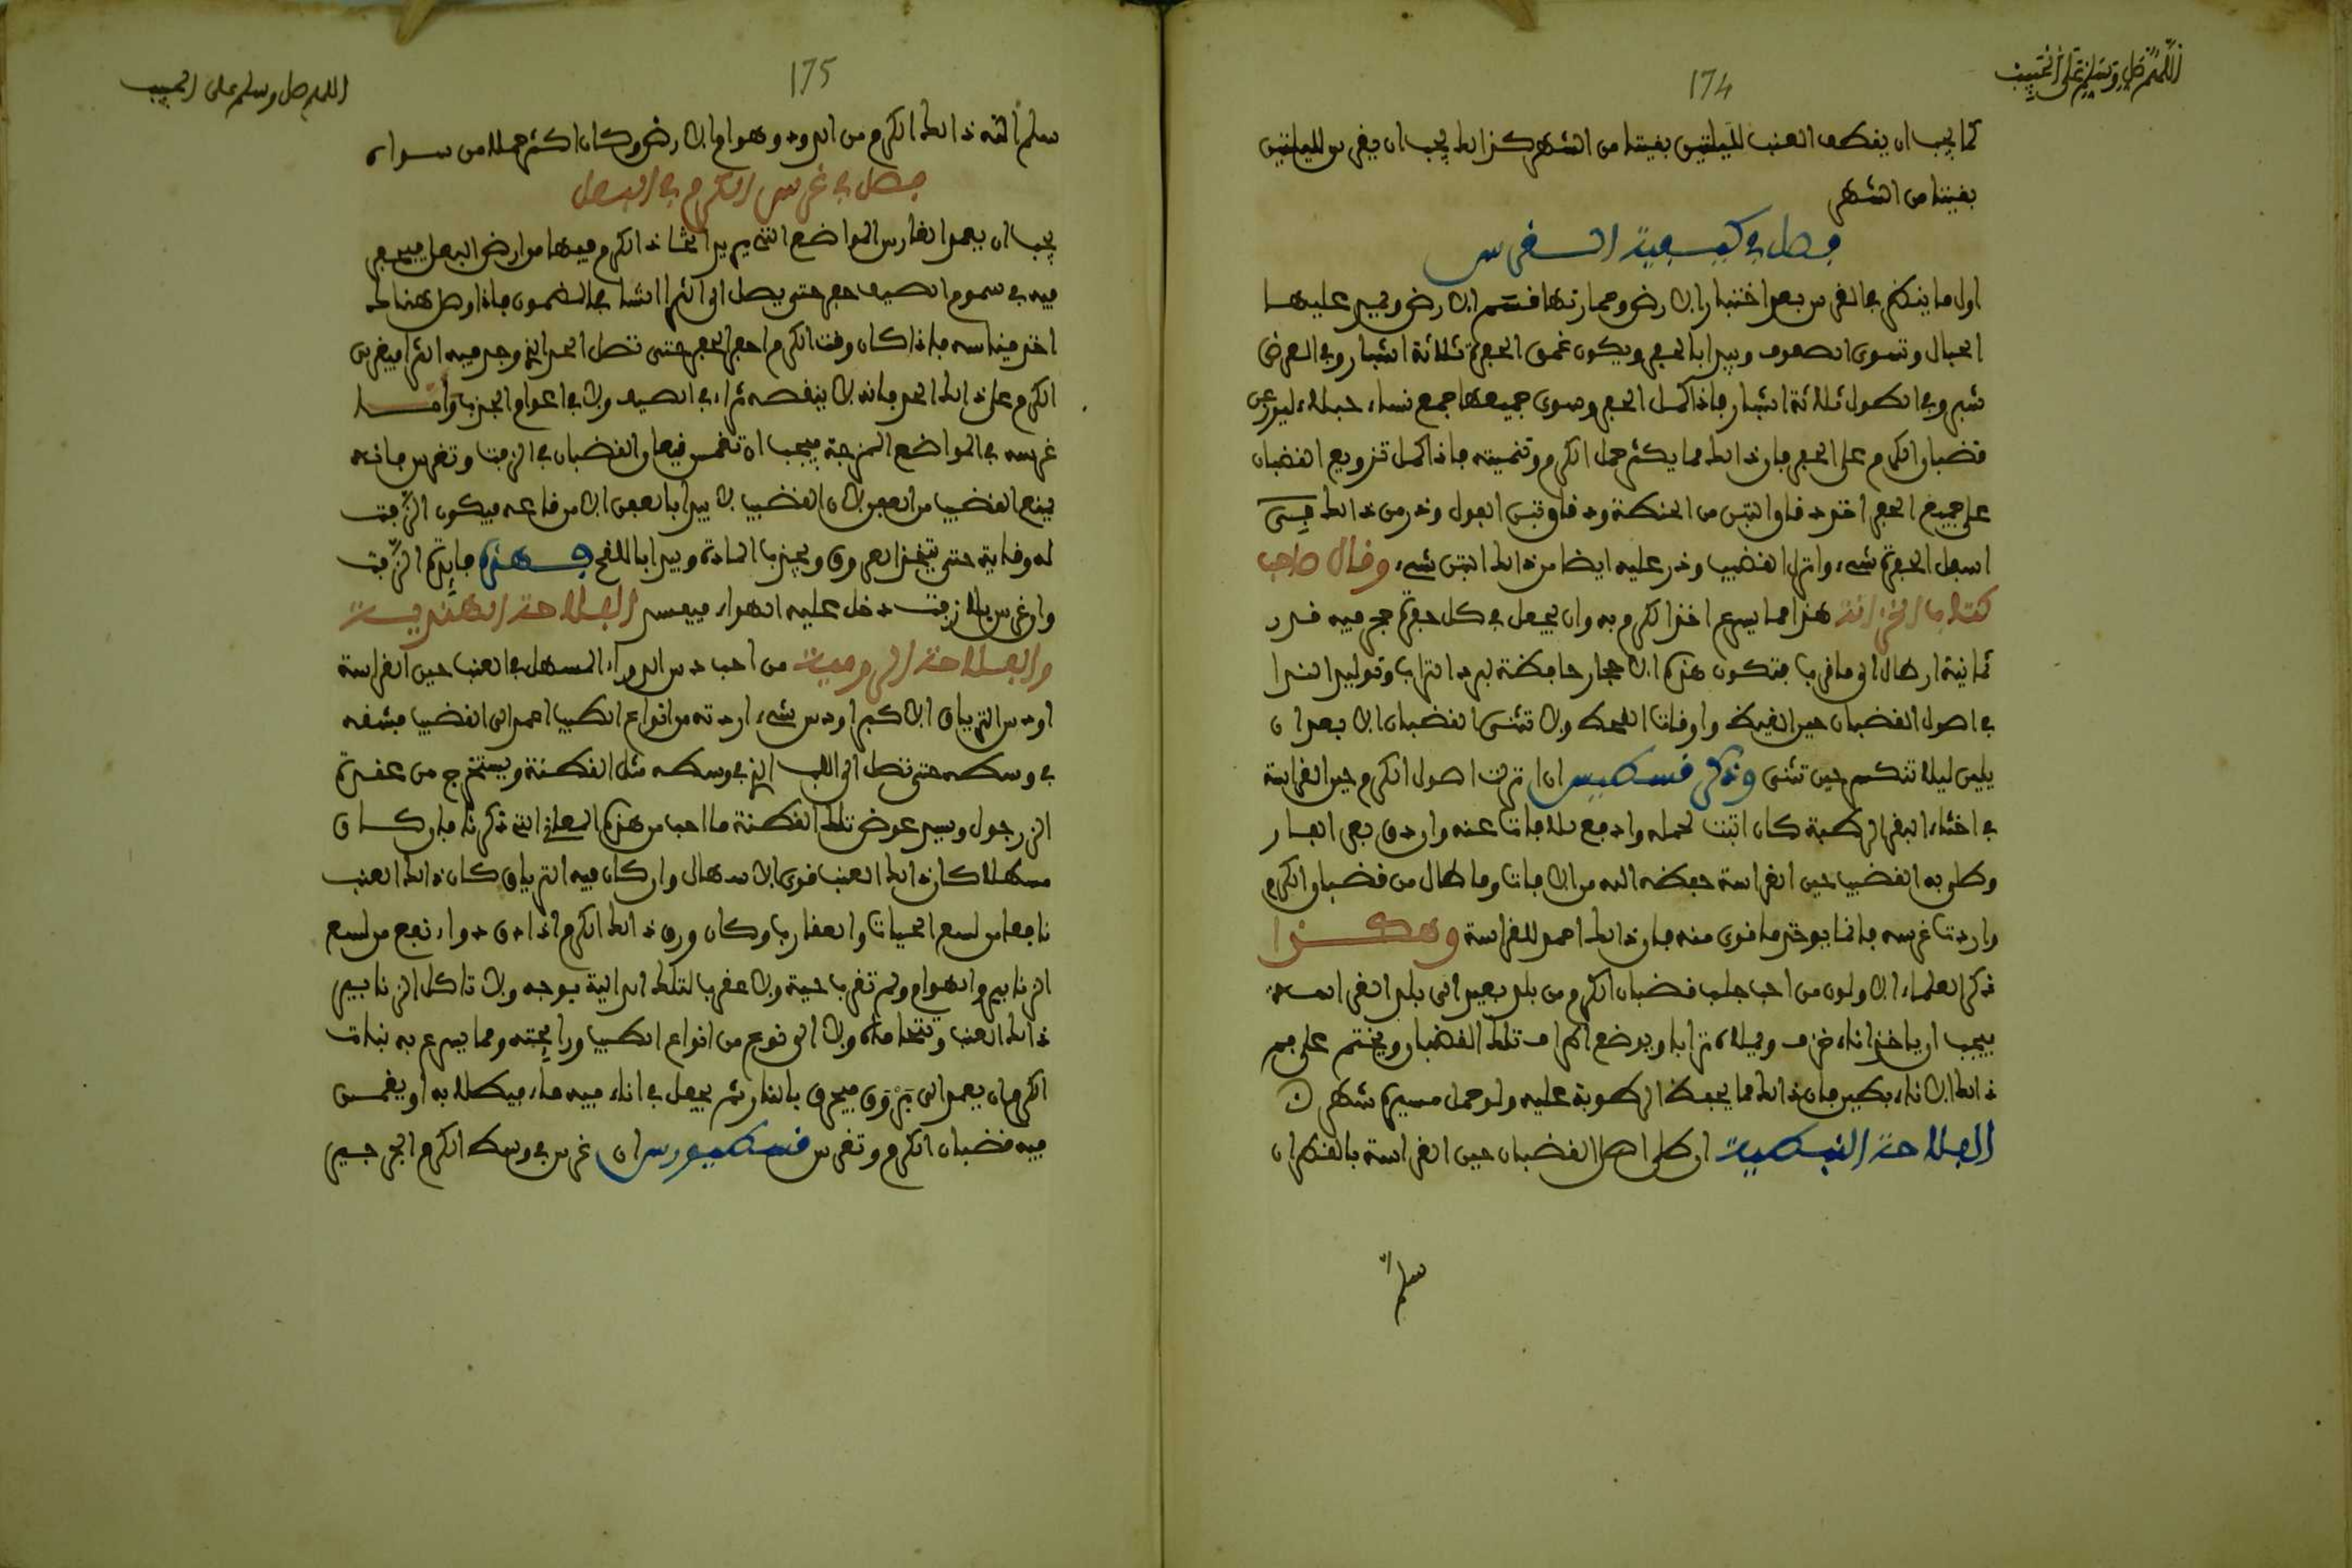 اللهم صل وسلم على الحبيب
174
كما يجب ان يقطف العنب لليلتين بقيتا من الشهر كذالك يجب ان يغرس لليلتين
بقيتا من الشهر
فصل في كيفية الغرس
اول ما ينظر في الغرس بعد اختبار الارض وعمارتها قسم الارض ويمد عليها
الحبال وتسوى الصفوف ويبدا بالحفر ويكون عمق الحفرة ثلاثة اشبار وفي العرض
شبر وفي الطول ثلاثة اشبار فاذا كمل الحفر وسوى جميعها جمع نساء حبلاء ليوزعن
قضبان الكرم على الحفر فان ذالك مما يكثر حمل الكرم وتنميته فاذا كمل توزيع القضبان
على جميع الحفر اخذ دقاق التبن من الحنطة ودقاق تبن الفول وذر من ذالك في
اسفل الحفرة شيء وانزل القضيب وذر عليه ايضا من ذالك التبن شيء وقال صاحب
كتاب الخزانة هذا مما يسرع اخذ الكرم به وان يجعل في كل حفرة حجر فيه قدر
ثمانية ارطال الى ما قرب فتكون هذه الاحجار حافظة لبرد التراب وتوليد الندا
في اصول القضبان حين القيظ واوقات القحط ولا تثنى القضبان الا بعد ان
يلين ليلا تنكسر حين تثنى وذكر قسطيس ان انزلت اصول الكرم حين الغراسة
في اخثاء البقر الرطبة كان اثبت لحمله وادفع للافات عنه وان دق بعر الفار
وطلي به القضيب حين الغراسة حفظه الله من الافات وما طال من قضبان الكرم
واردت غرسه فانما يوخذ ما قوى منه فان ذالك احمد للغراسة وهكذا
ذكر العلماء الاولون من احب جلب قضبان الكرم من بلد بعيد الى بلد الغراسة
فيجب ان ياخذ اناء خزف ويملاه ترابا ويوضع اطراف تلك القضبان ويختم على فم
ذالك الاناء بطين فان ذالك مما يحفظ الرطوبة عليه ولو حمل مسيرة شهر ن
الفلاحة النبطية ان طلي اصل القضبان حين الغراسة بالقطران
سلم
اللهم صل وسلم على الحبيب
175
سلم الله ذالك الكرم من الدود وهوام الارض وكان اكثر حملا من سواه
فصل في غرس الكرم في البعل
يجب ان يعمد الغارس المواضع التي يريد اتخاذ الكرم فيها من ارض البعل فيحفر
فيه في سموم الصيف حفر حتى يصل الى الثرا الندا في الغمون فاذا وصل هناك
اختر مقياسه فاذا كان وقت الكرم احفر الحفر حتى تصل الحد الذي وجد فيه الثرا فيغرس
الكرم على ذالك الحد فانه لا ينقصه ثراء في الصيف ولا في اعوام الجدب واما
غرسه في المواضع المزجة فيجب ان تغمس فيها القضبان في الزفت وتغرس فانه
يمنع القضيب من العفن لان القضيب لا يبدا بالعفن الا من قاعه فيكون الزفت
له وقاية حتى يتخذ العروق ويجذب المادة ويبدا باللقح فهذه فايدة الزفت
وان غرس بلا زفت دخل عليه الهواء فيفسد الفلاحة الهندية
والفلاحة الرومية من احب دس الدواء المسهل في العنب حين الغراسة
او دس الترياق الاكبر او دس شيء اردته من انواع الطيب اعمد الى القضيب فشقه
في وسطه حتى تصل الى اللب الذي في وسطه مثل القطنة ويستخرج من عقدة
الزرجون ويسد عوض تلك القطنة ما احب من هذه المعاني التي ذكرنا فان كان
مسهلا كان ذالك العنب قوى الاسهال وان كان فيه الترياق كان ذالك العنب
نافعا من لسع الحيات والعقارب وكان ورق ذالك الكرم اذا دق دواء نفع من لسع
الزنابير والهوام ولم تقرب حية ولا عقرب لتلك الدالية بوجه ولا تاكل الزنابير
ذالك العنب وتتحاماه ولا الى نوع من انواع الطيب ورايحته ومما يسرع به نبات
الكرم ان يعمد الى بزوق فيحرق بالنار ثم يجعل في اناء فيه ماء فيطلا به او يغمس
فيه قضبان الكرم وتغرس قسطيوس ان غرس في وسط الكرم الجرجير